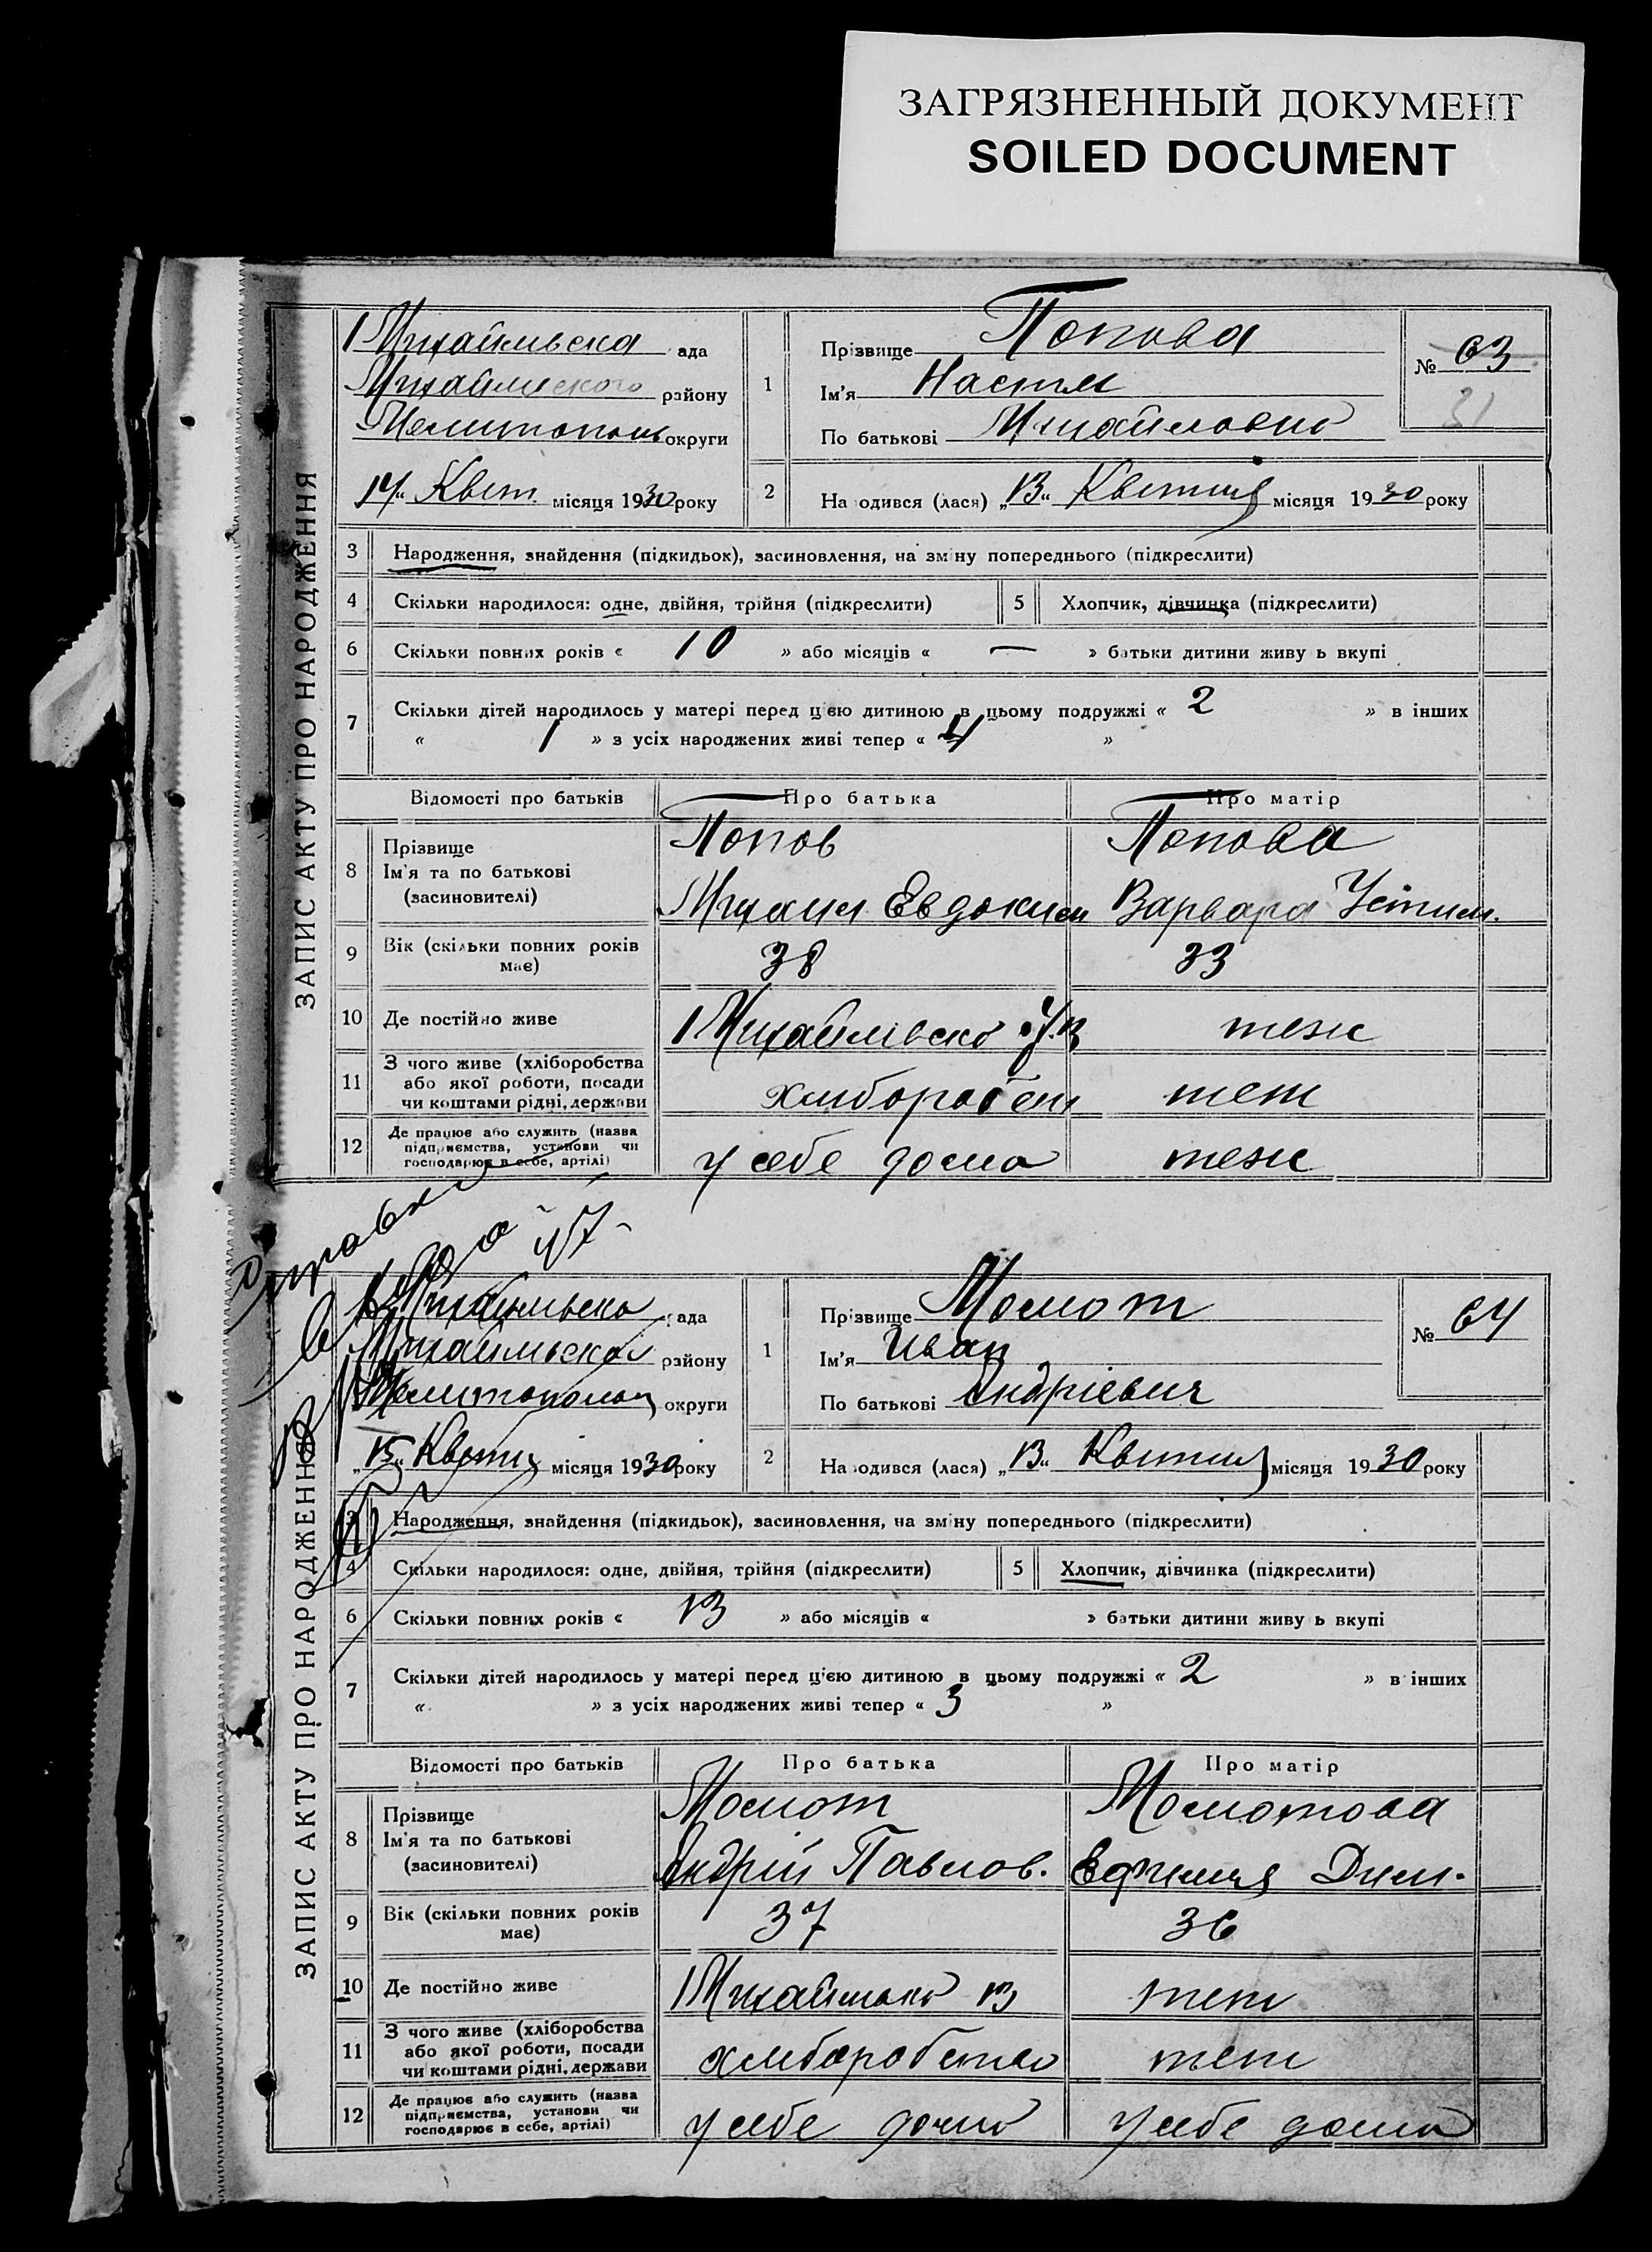 ЗАГРЯЗНЕННЫЙ ДОКУМЕНТ
SOILED DOCUMENT
ЗАПИС АКТУ ПРО НАРОДЖЕННЯ
1 Михайлівська ада
Михайлівского району
Мелитополь округи
14 " Квіт. місяця 1930 року
1
Прізвище Попова
Ім'я Настя
По батькові Михайловно
№ 63
31
2
На одився (лася) „13" Квитня місяця 1930 року
3 Народження, знайдення (підкидьок), засиновлення, на зміну попереднього (підкреслити)
4 Скільки народилося: одне, двійня, трійня (підкреслити)
5 Хлопчик, дівчинка (підкреслити)
6 Скільки повних років « 10 » або місяців « — » батьки дитини живу ь вкупі
7 Скільки дітей народилось у матері перед цією дитиною в цьому подружжі « 2 » в інших
« 1 » з усіх народжених живі тепер « 4 »
Відомості про батьків Про батька Про матір
8 Прізвище
Ім'я та по батькові
(засиновителі)
Попов
Михаил Евдоким
Попова
Варвара Устим.
9 Вік (скільки повних років має) 38 33
10 Де постійно живе 1 Михайлівско теж
11 З чого живе (хліборобства
або якої роботи, посади
чи коштами рідні, держави
хлиборобст теж
12 Де працює або служить (назва
підприємства, установи чи
господарює в себе, артілі)
у себе дома теж
47
ЗАПИС АКТУ ПРО НАРОДЖЕННЯ
Михайлівско ада
Михайлівскої району
Мелитополь округи
„15" Квітня місяця 1930 року
1
Прізвище Момот
Ім'я Иван
По батькові Андріевич
№ 64
2
На одився (лася) „13" Квитня місяця 1930 року
3 Народження, знайдення (підкидьок), засиновлення, на зміну попереднього (підкреслити)
4 Скільки народилося: одне, двійня, трійня (підкреслити)
5 Хлопчик, дівчинка (підкреслити)
6 Скільки повних років « 13 » або місяців « » батьки дитини живу ь вкупі
7 Скільки дітей народилось у матері перед цією дитиною в цьому подружжі « 2 » в інших
« » з усіх народжених живі тепер « 3 »
Відомості про батьків Про батька Про матір
8 Прізвище
Ім'я та по батькові
(засиновителі)
Момот
Андрій Павлов.
Момотова
Ефимия Дим.
9 Вік (скільки повних років має) 37 36
10 Де постійно живе 1 Михайлівко теж
11 З чого живе (хліборобства
або якої роботи, посади
чи коштами рідні, держави
хлиборобство теж
12 Де працює або служить (назва
підприємства, установи чи
господарює в себе, артілі)
у себе дома у себе дома